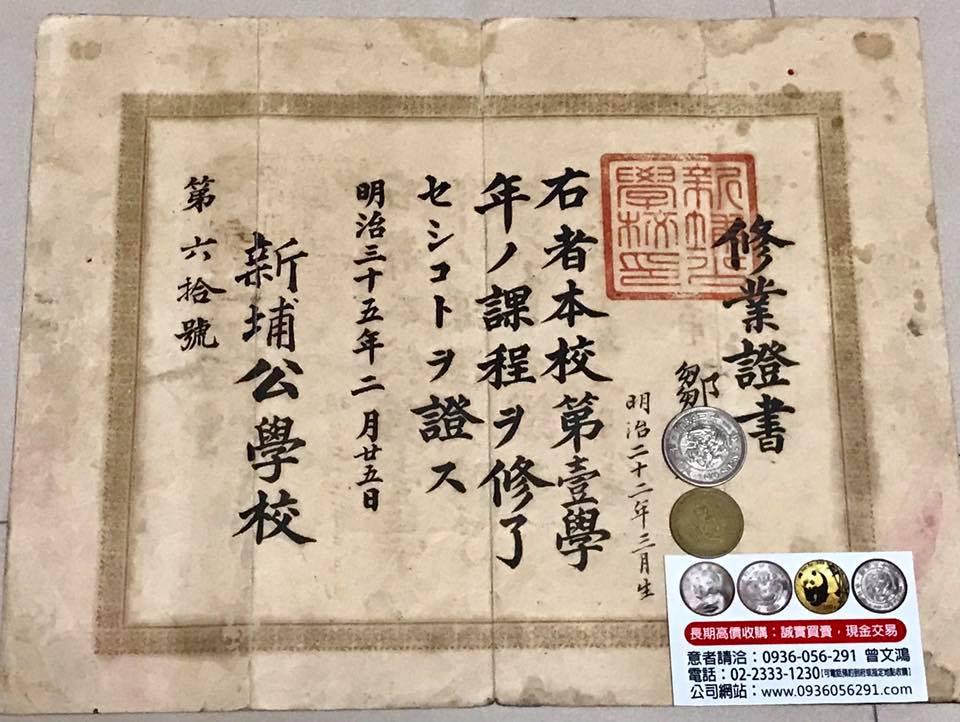 修業證書
新埔公
學校印
鄒
明治二十二年三月生
右者本校第壹學
年ノ課程ヲ修了
セシコトヲ證ス
明治三十五年二月廿五日
新埔公學校
第六拾號
長期高價收購：誠實買賣，現金交易
意者請洽：0936-056-291 曾文鴻
電話：02-2333-1230
公司網站：www.0936056291.com